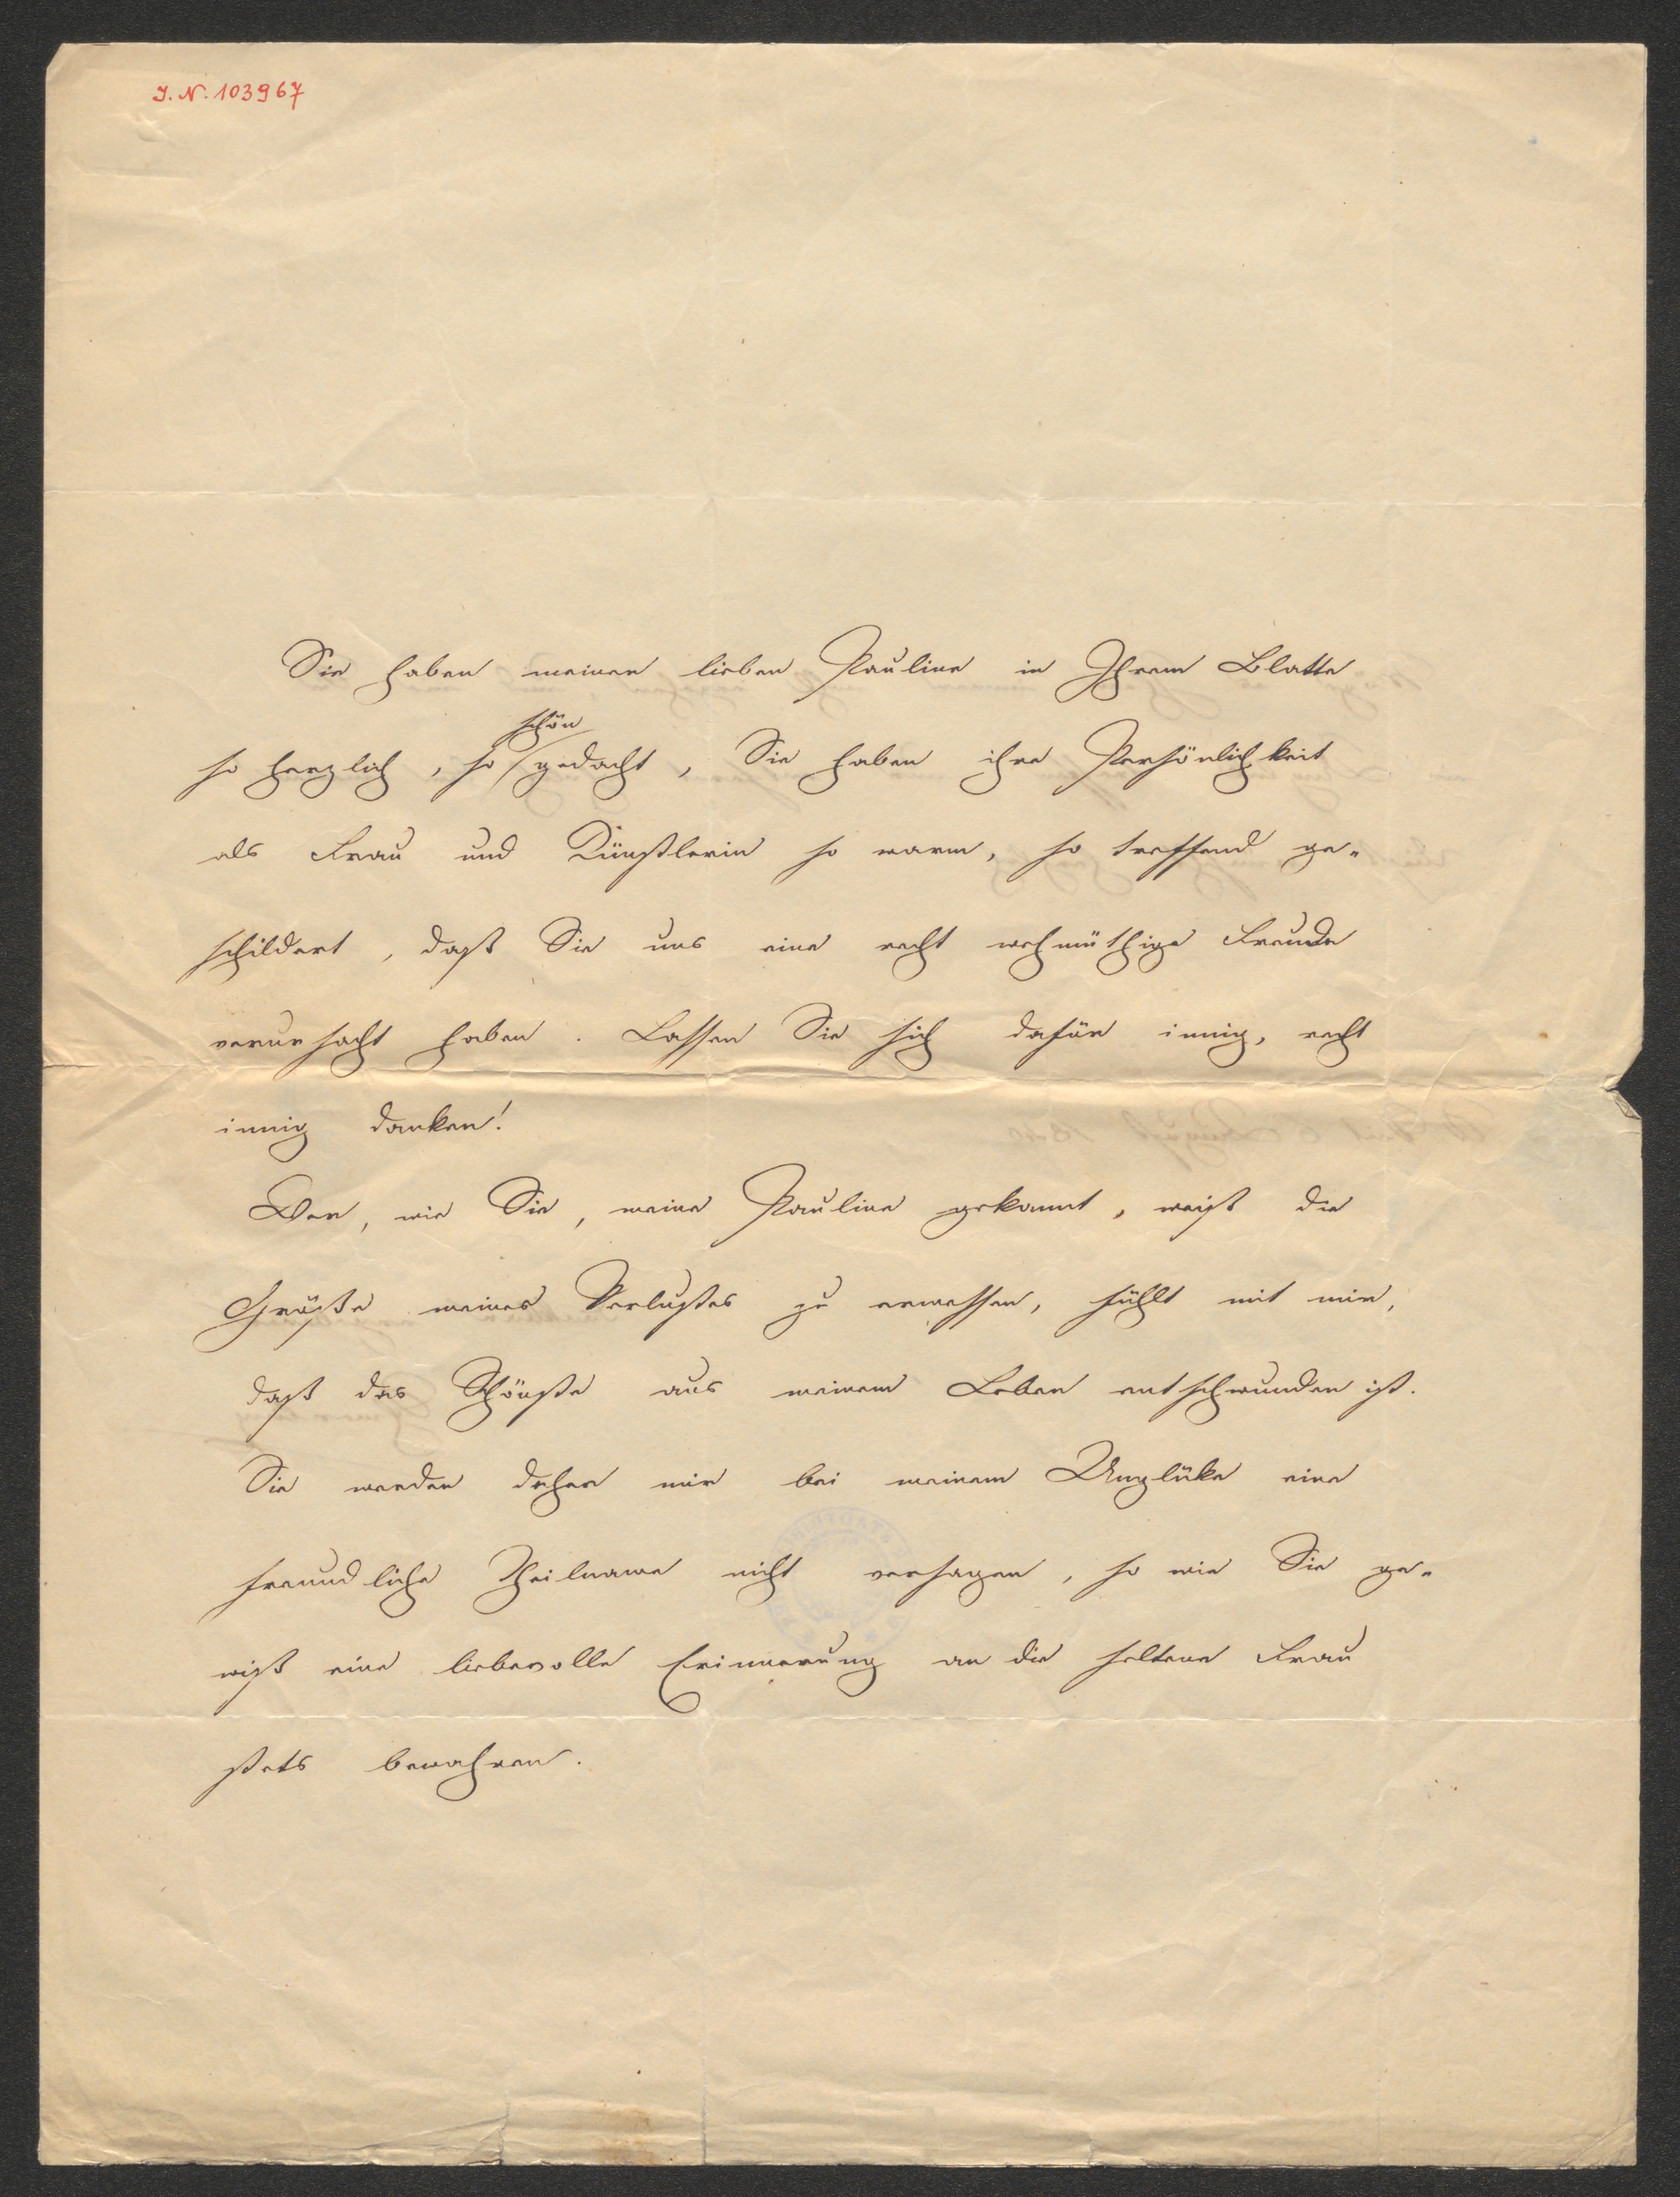 I. N. 103967
Sie haben meiner lieben Pauline in Ihrem Blatte
schön
so herzlich, so gedacht, Sie haben ihre Persönlichkeit
als Frau und Künstlerin so warm, so treffend ge-
schildert, daß Sie uns eine recht wehmüthige Freude
verursacht haben. Lassen Sie sich dafür innig, recht
innig danken!
Wer, wie Sie, meine Pauline gekannt, weiß die
Größe meines Verlustes zu ermessen, fühlt mit mir,
daß das Schönste aus meinem Leben entschwunden ist.
Sie werden daher mir bei meinem Unglüke eine
freundliche Theilname nicht versagen, so wie Sie ge-
wiß eine liebevolle Erinnerung an die seltene Frau
stets bewahren.